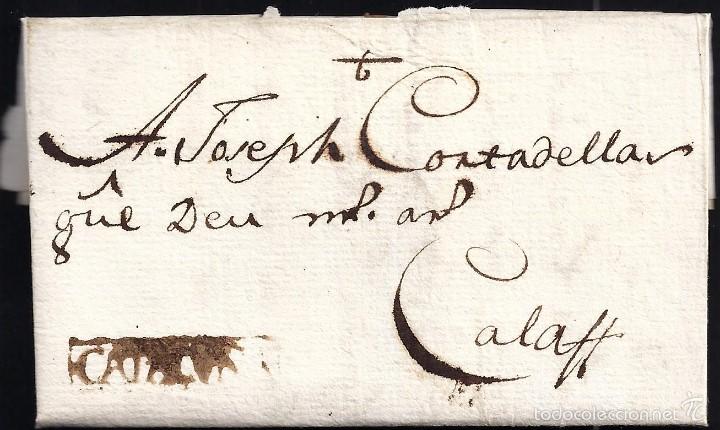 +
A. Joseph Cortadellas
gūe Deu m.s an.s
Calaff
CATALUÑA
todocoleccion.net